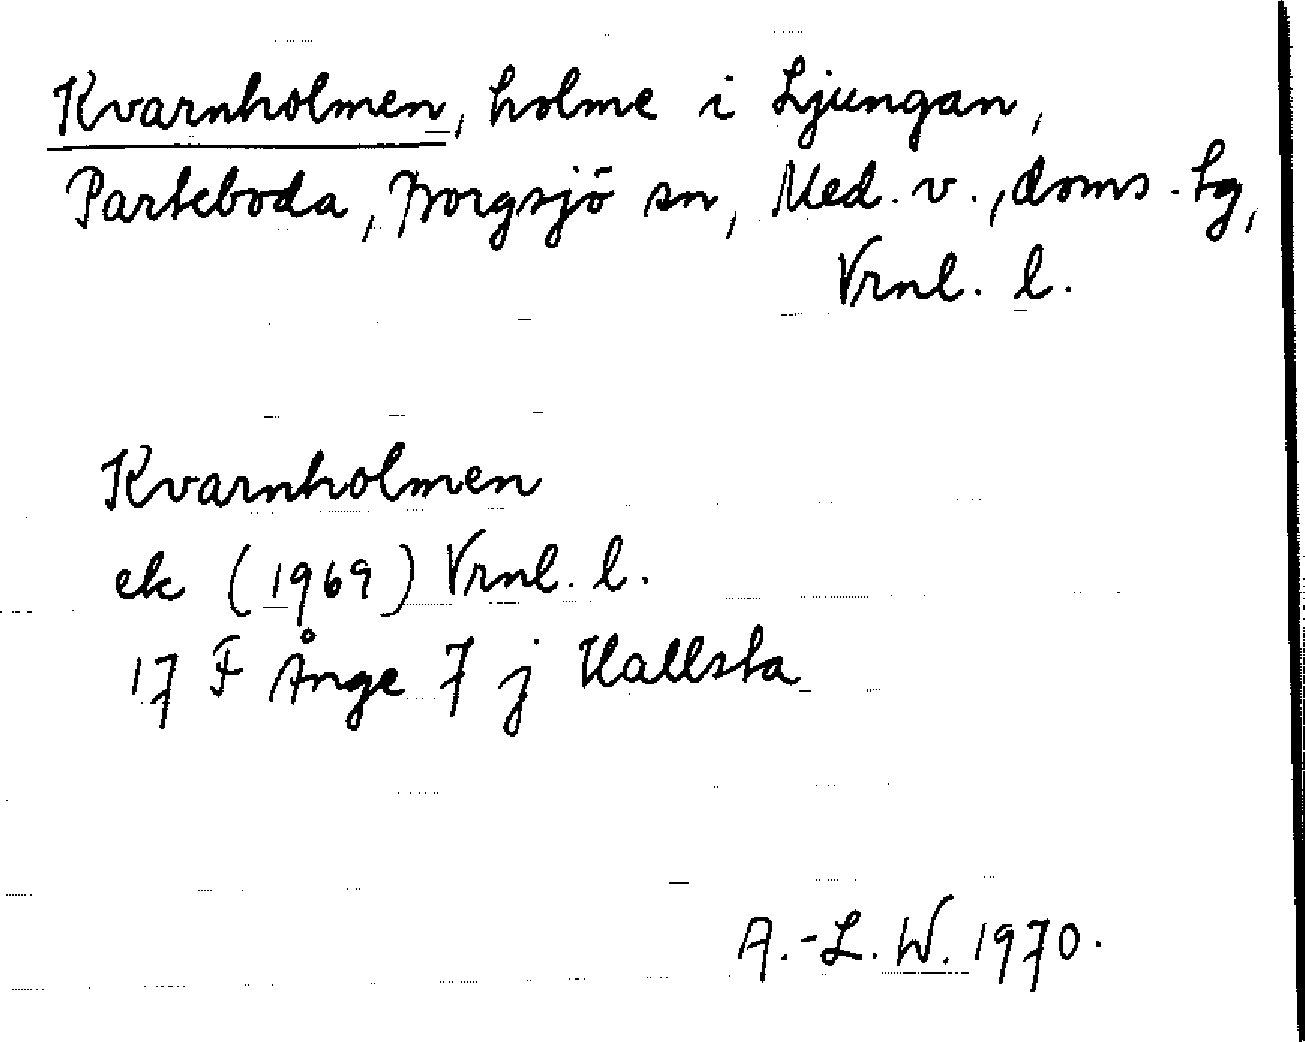 Kvarnholmen, holme i Ljungan,
Parteboda, Borgsjö sn, Med. v., doms. tg,
Vrnl. l.
Kvarnholmen
ek (1969) Vrnl. l.
17 F Ånge 7 j Hallsta
A.-L. W. 1970.